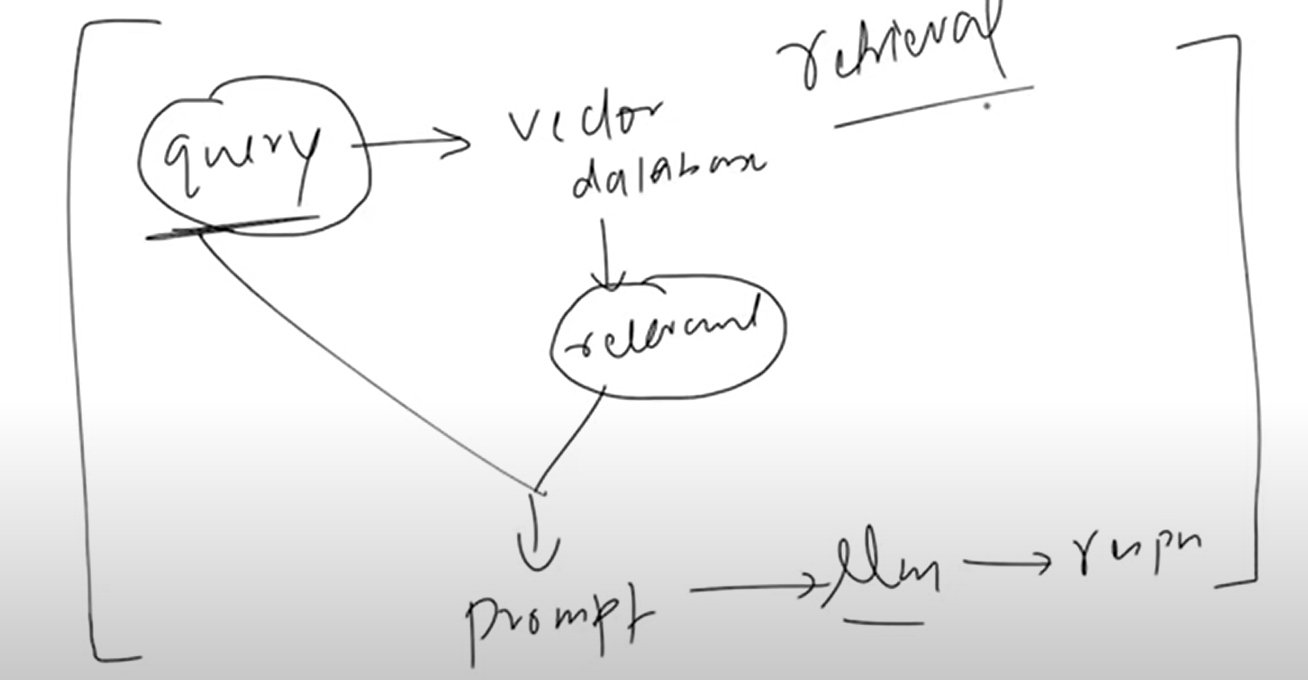 retrieval
query
vector
database
relevant
prompt
llm